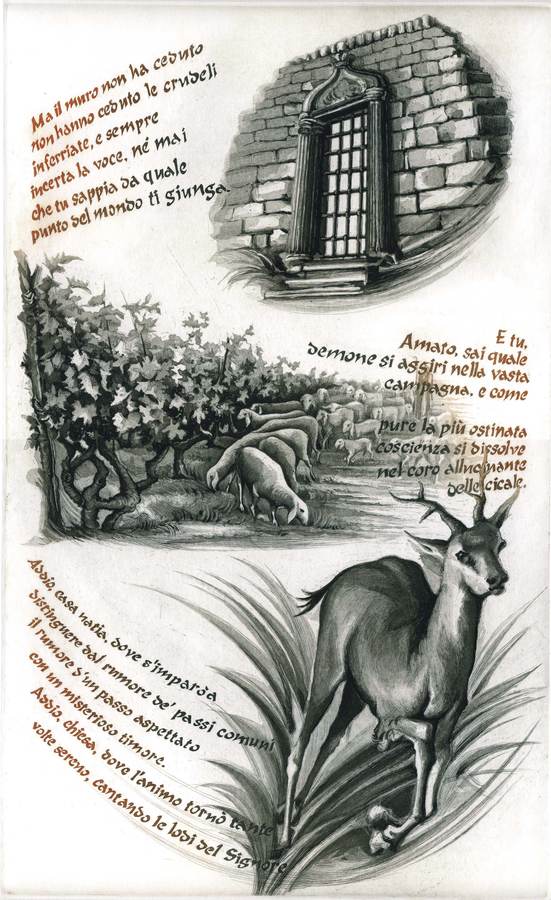 Ma il muro non ha ceduto
non hanno ceduto le crudeli
inferriate, e sempre
incerta la voce, né mai
che tu sappia da quale
punto del mondo ti giunga.
E tu,
Amato, sai quale
demone si aggiri nella vasta
campagna, e come
pure la più ostinata
coscienza si dissolve
nel coro allucinante
delle cicale.
Addio, casa natia, dove s'imparda
distinguere dal rumore de' passi comuni
il rumore d'un passo aspettato
con un misterioso timore.
Addio, chiesa, dove l'animo tornò tante
volte sereno, cantando le lodi del Signore